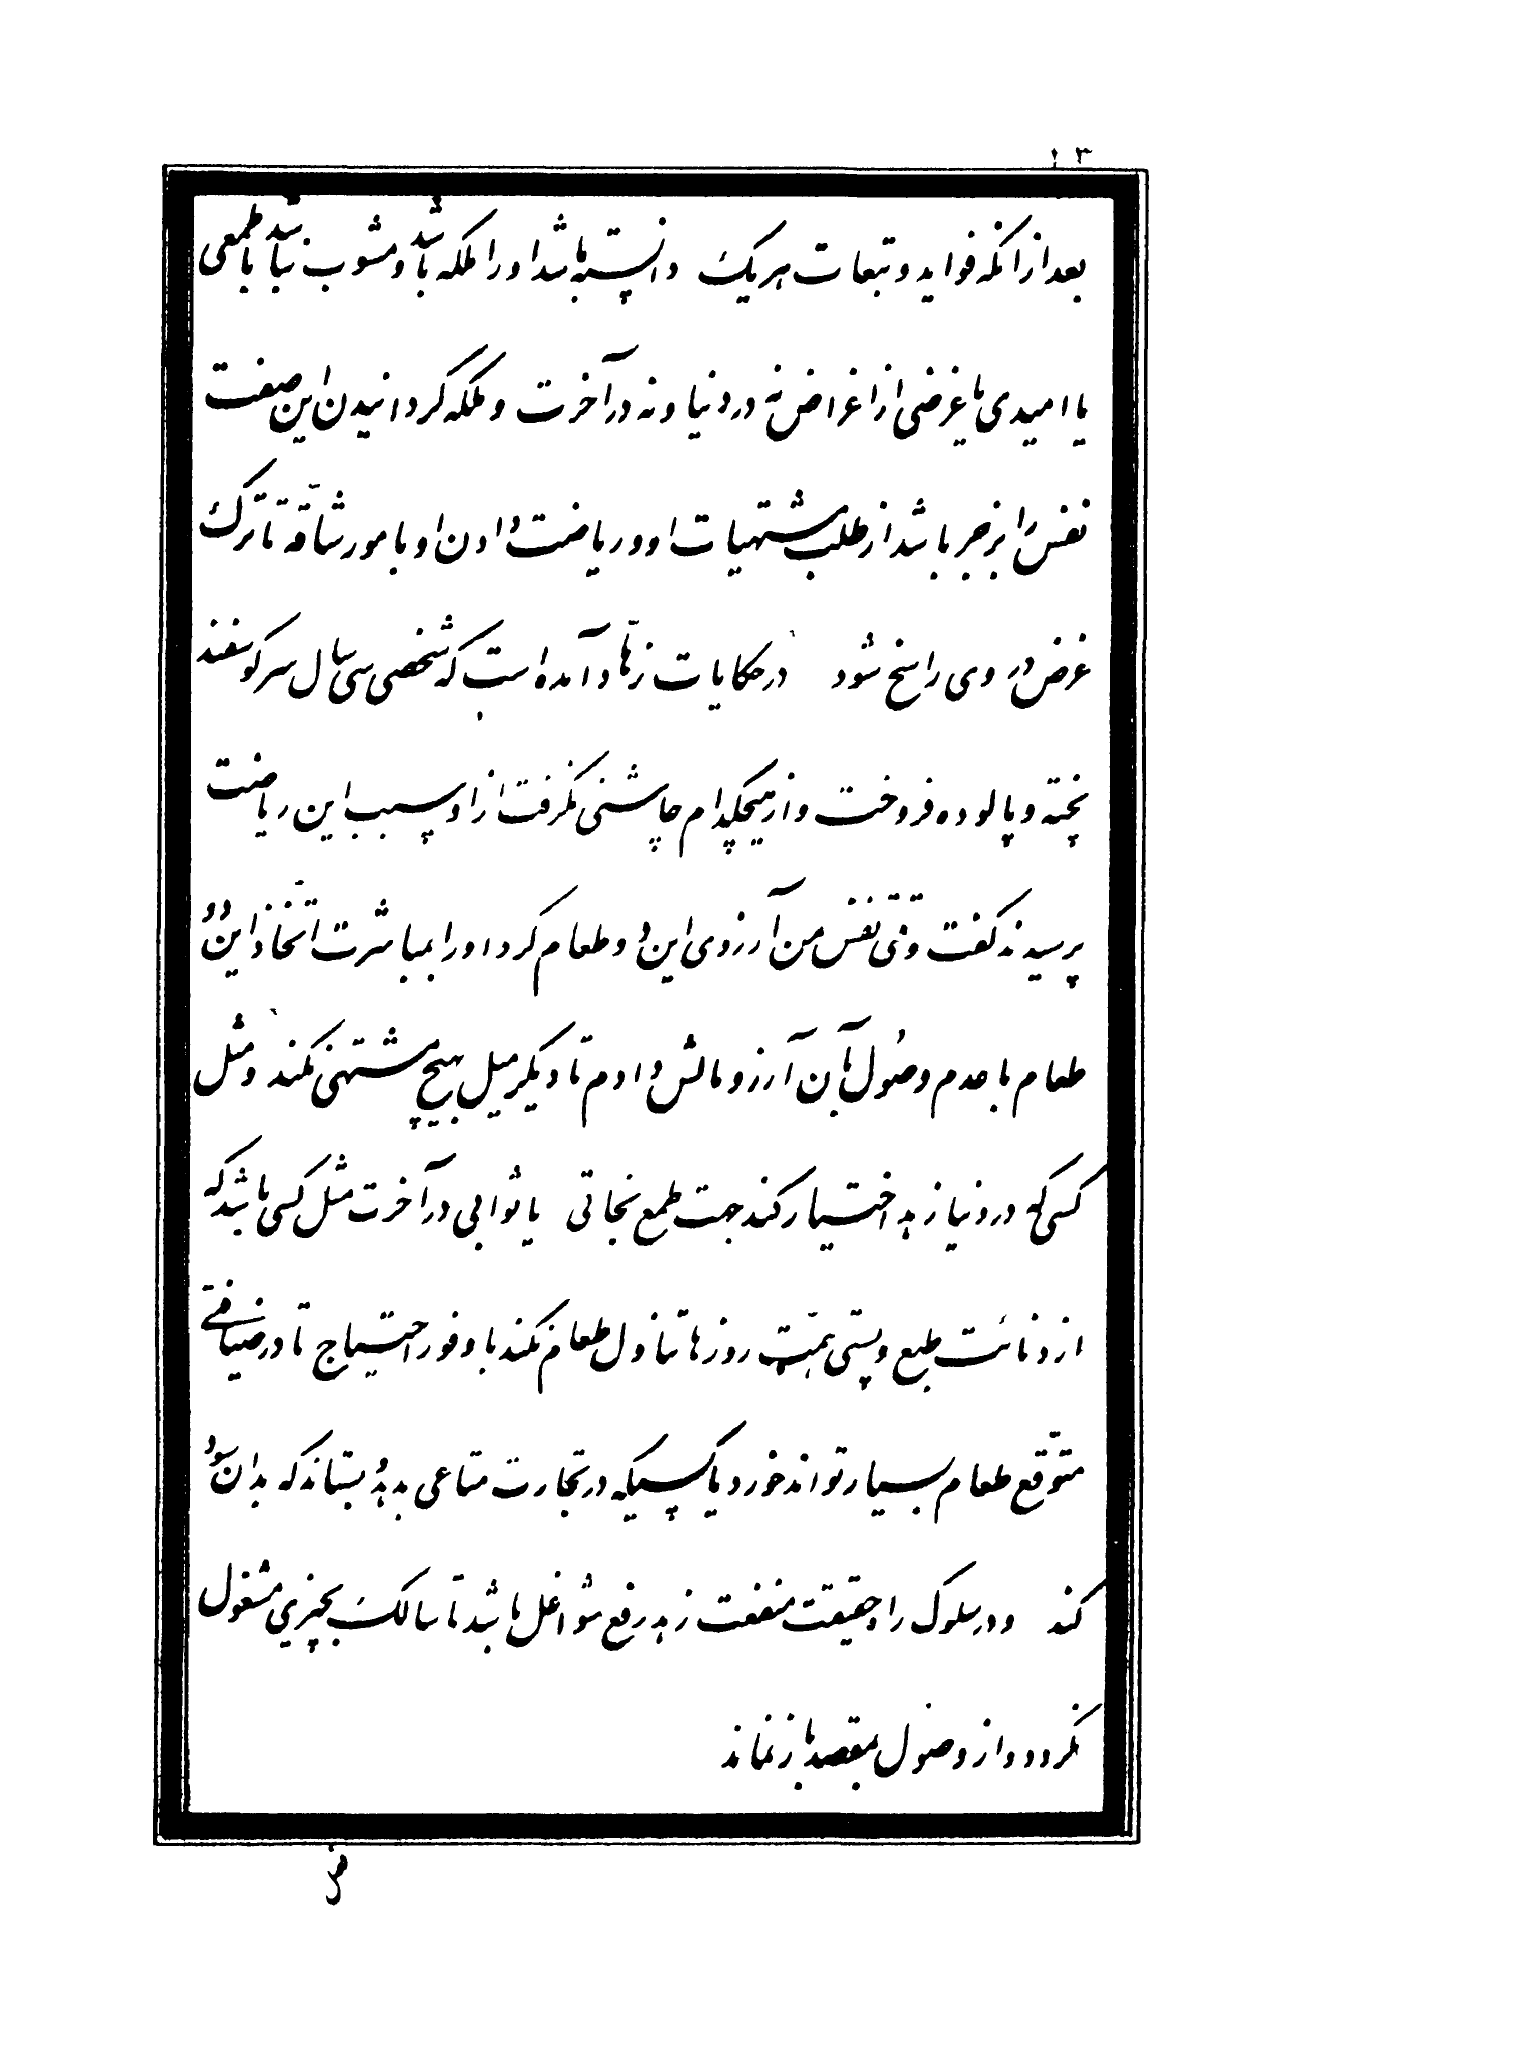 ۱۳
بعد از انکه فواید و تبعات هر یک دانسته باشد او را ملکه باشد و مشوب نباشد با طمعی
یا امیدی یا غرضی از اغراض نه در دنیا و نه در آخرت و ملکه کردانیدن این صفت
نفس را بزجر باشد از طلب مشتهیات او و ریاضت دادن او بامور شاقّه تا ترک
غرض در وی راسخ شود در حکایات زهّاد آمده است که شخصی سی سال سر کوسفند
پخته و پالوده فروخت و از هیچکدام چاشنی نکرفت ازاو سبب این ریاضت
پرسیدند کفت وقتی نفس من آرزوی این دو طعام کرد او را بمباشرت اتّخاذ این دو
طعام با عدم وصول بآن آرزو مالش دادم تا دیکر میل بهیچ مشتهی نکند و مثل
کسی که در دنیا زهد اختیار کند جهت طمع نجاتی یا ثوابی در آخرت مثل کسی باشد که
از دنائت طبع و پستی همّت روزها تناول طعام نکند با وفور احتیاج تا در ضیافتی
متوقّع طعام بسیار تواند خورد یا کسیکه در تجارت متاعی بدهد و بستاند که بدان سود
کند و در سلوک راه حقیقت منفعت زهد رفع شواغل باشد تا سالک بچیزی مشغول
نکردد و از وصول بمقصد باز نماند